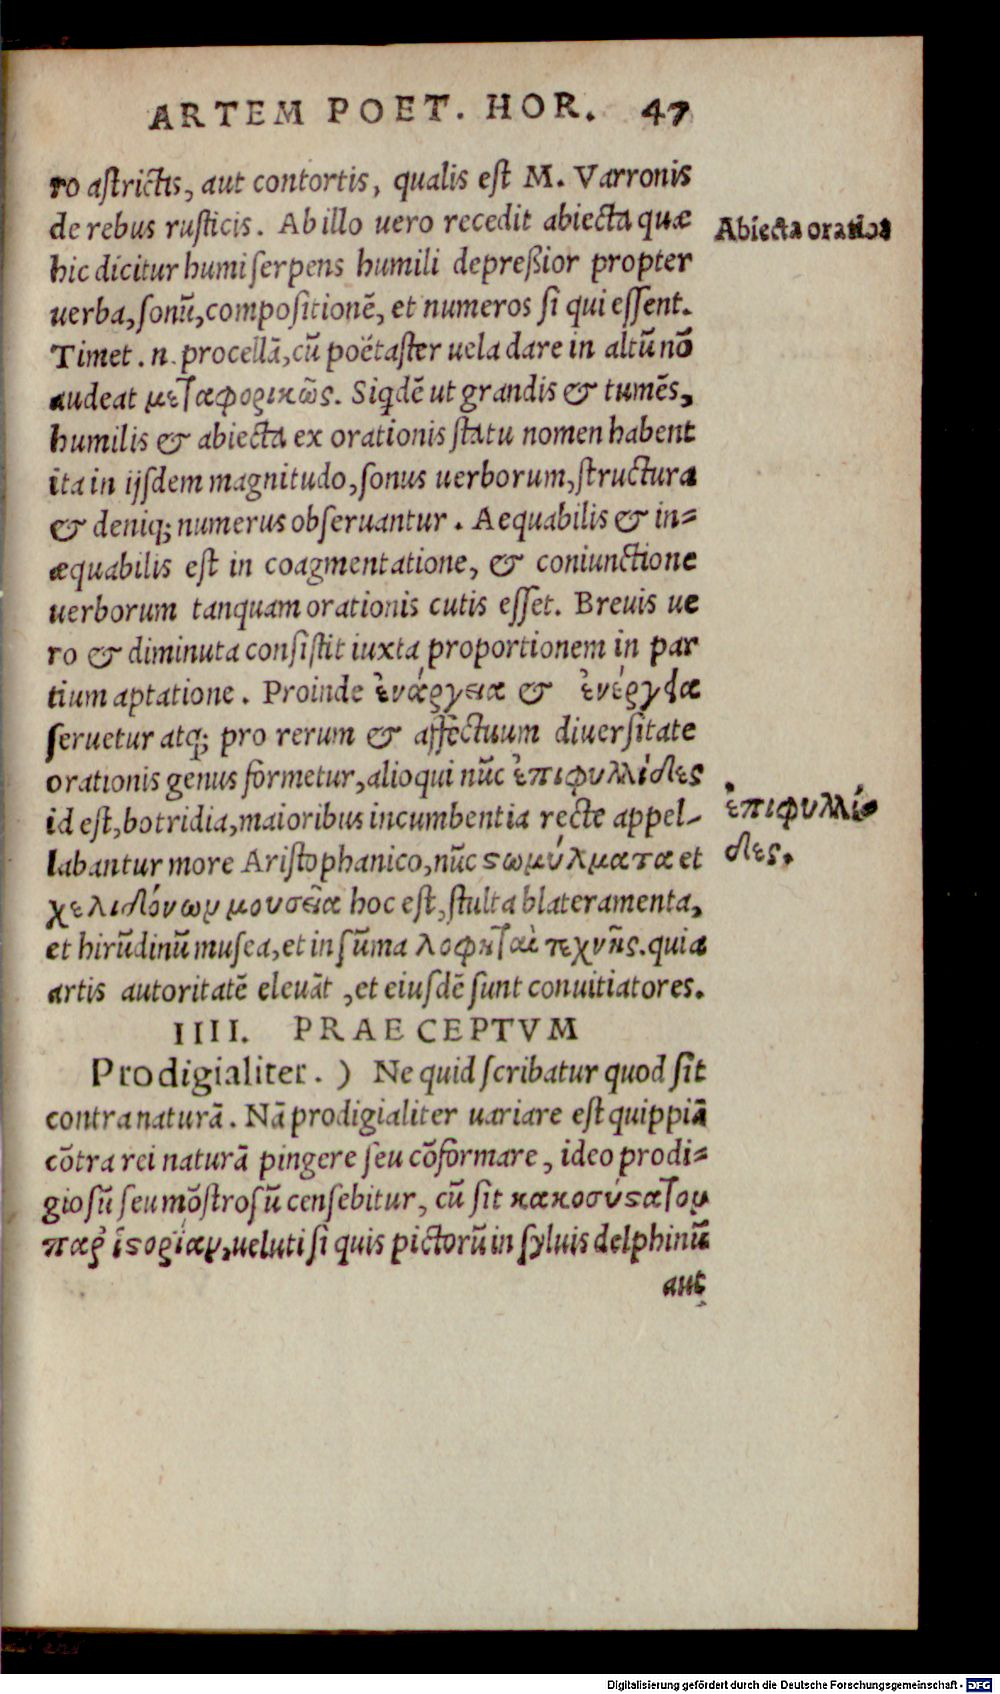 ARTEM POET. HOR. 47
ro astrictis, aut contortis, qualis est M. Varronis
de rebus rusticis. Ab illo uero recedit abiecta quæ
Abiecta oratio
hic dicitur humi serpens humili depreßior propter
uerba, sonū, compositionē, et numeros si qui essent.
Timet. n. procellā, cū poëtaster uela dare in altū nō
audeat μεταφορικῶς. Siqdē ut grandis & tumēs,
humilis & abiecta ex orationis statu nomen habent
ita in ijsdem magnitudo, sonus uerborum, structura
& deniq; numerus obseruantur. Aequabilis & in=
æquabilis est in coagmentatione, & coniunctione
uerborum tanquam orationis cutis esset. Breuis ue
ro & diminuta consistit iuxta proportionem in par
tium aptatione. Proinde ἐνάργεια & ἐνέργεια
seruetur atq; pro rerum & affectuum diuersitate
orationis genus formetur, alioqui nūc ἐπιφυλλίδες
id est, botridia, maioribus incumbentia recte appel-
ἐπιφυλλί
labantur more Aristophanico, nūc στωμύλματα et
δες.
χελιδόνων μουσεῖα hoc est, stulta blateramenta,
et hirūdinū musea, et in sūma λοφηταὶ τεχνῆς. quia
artis autoritatē eleuāt, et eiusdē sunt conuitiatores.
IIII. PRAECEPTVM
Prodigialiter.) Ne quid scribatur quod sit
contra naturā. Nā prodigialiter uariare est quippiā
cōtra rei naturā pingere seu cōformare, ideo prodi=
giosū seu mōstrosū censebitur, cū sit κακοσύστατον
παρ' ἱστορίαν, ueluti si quis pictorū in syluis delphinū
aut
Digitalisierung gefördert durch die Deutsche Forschungsgemeinschaft - DFG